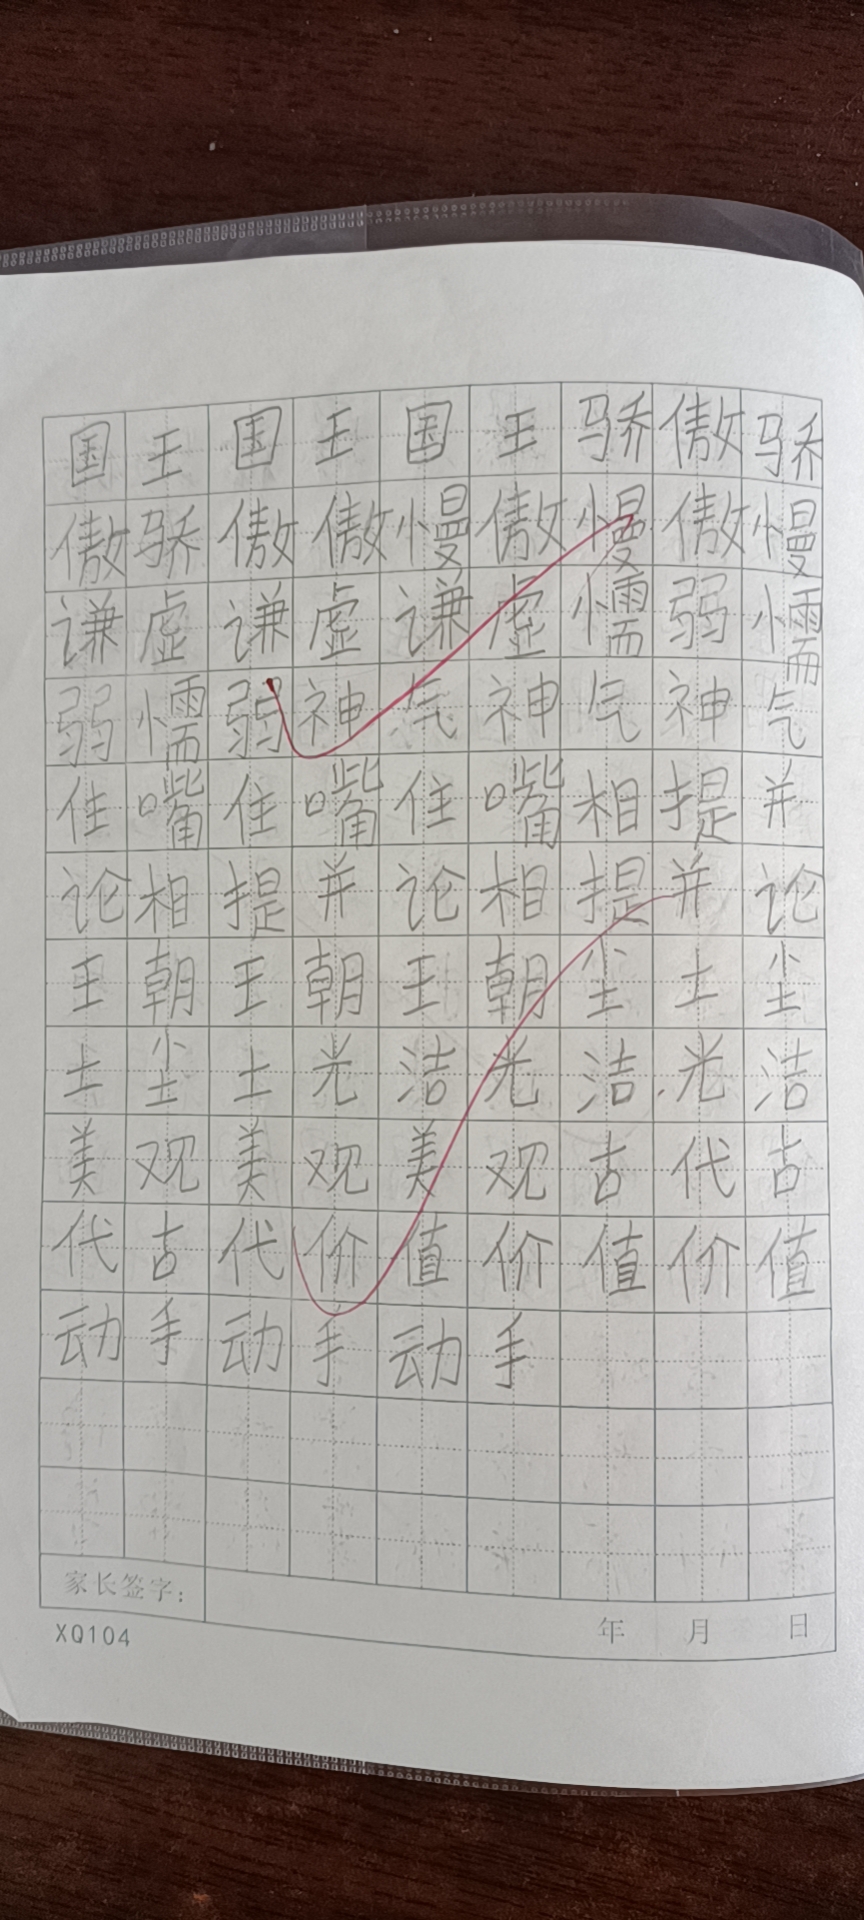 国王国王国王骄傲骄
傲骄傲傲慢傲慢傲慢
谦虚谦虚谦虚懦弱懦
弱懦弱神气神气神气
住嘴住嘴住嘴相提并
论相提并论相提并论
王朝王朝王朝尘土尘
土尘土光洁光洁光洁
美观美观美观古代古
代古代价值价值价值
动手动手动手
家长签字:
年 月 日
XQ104